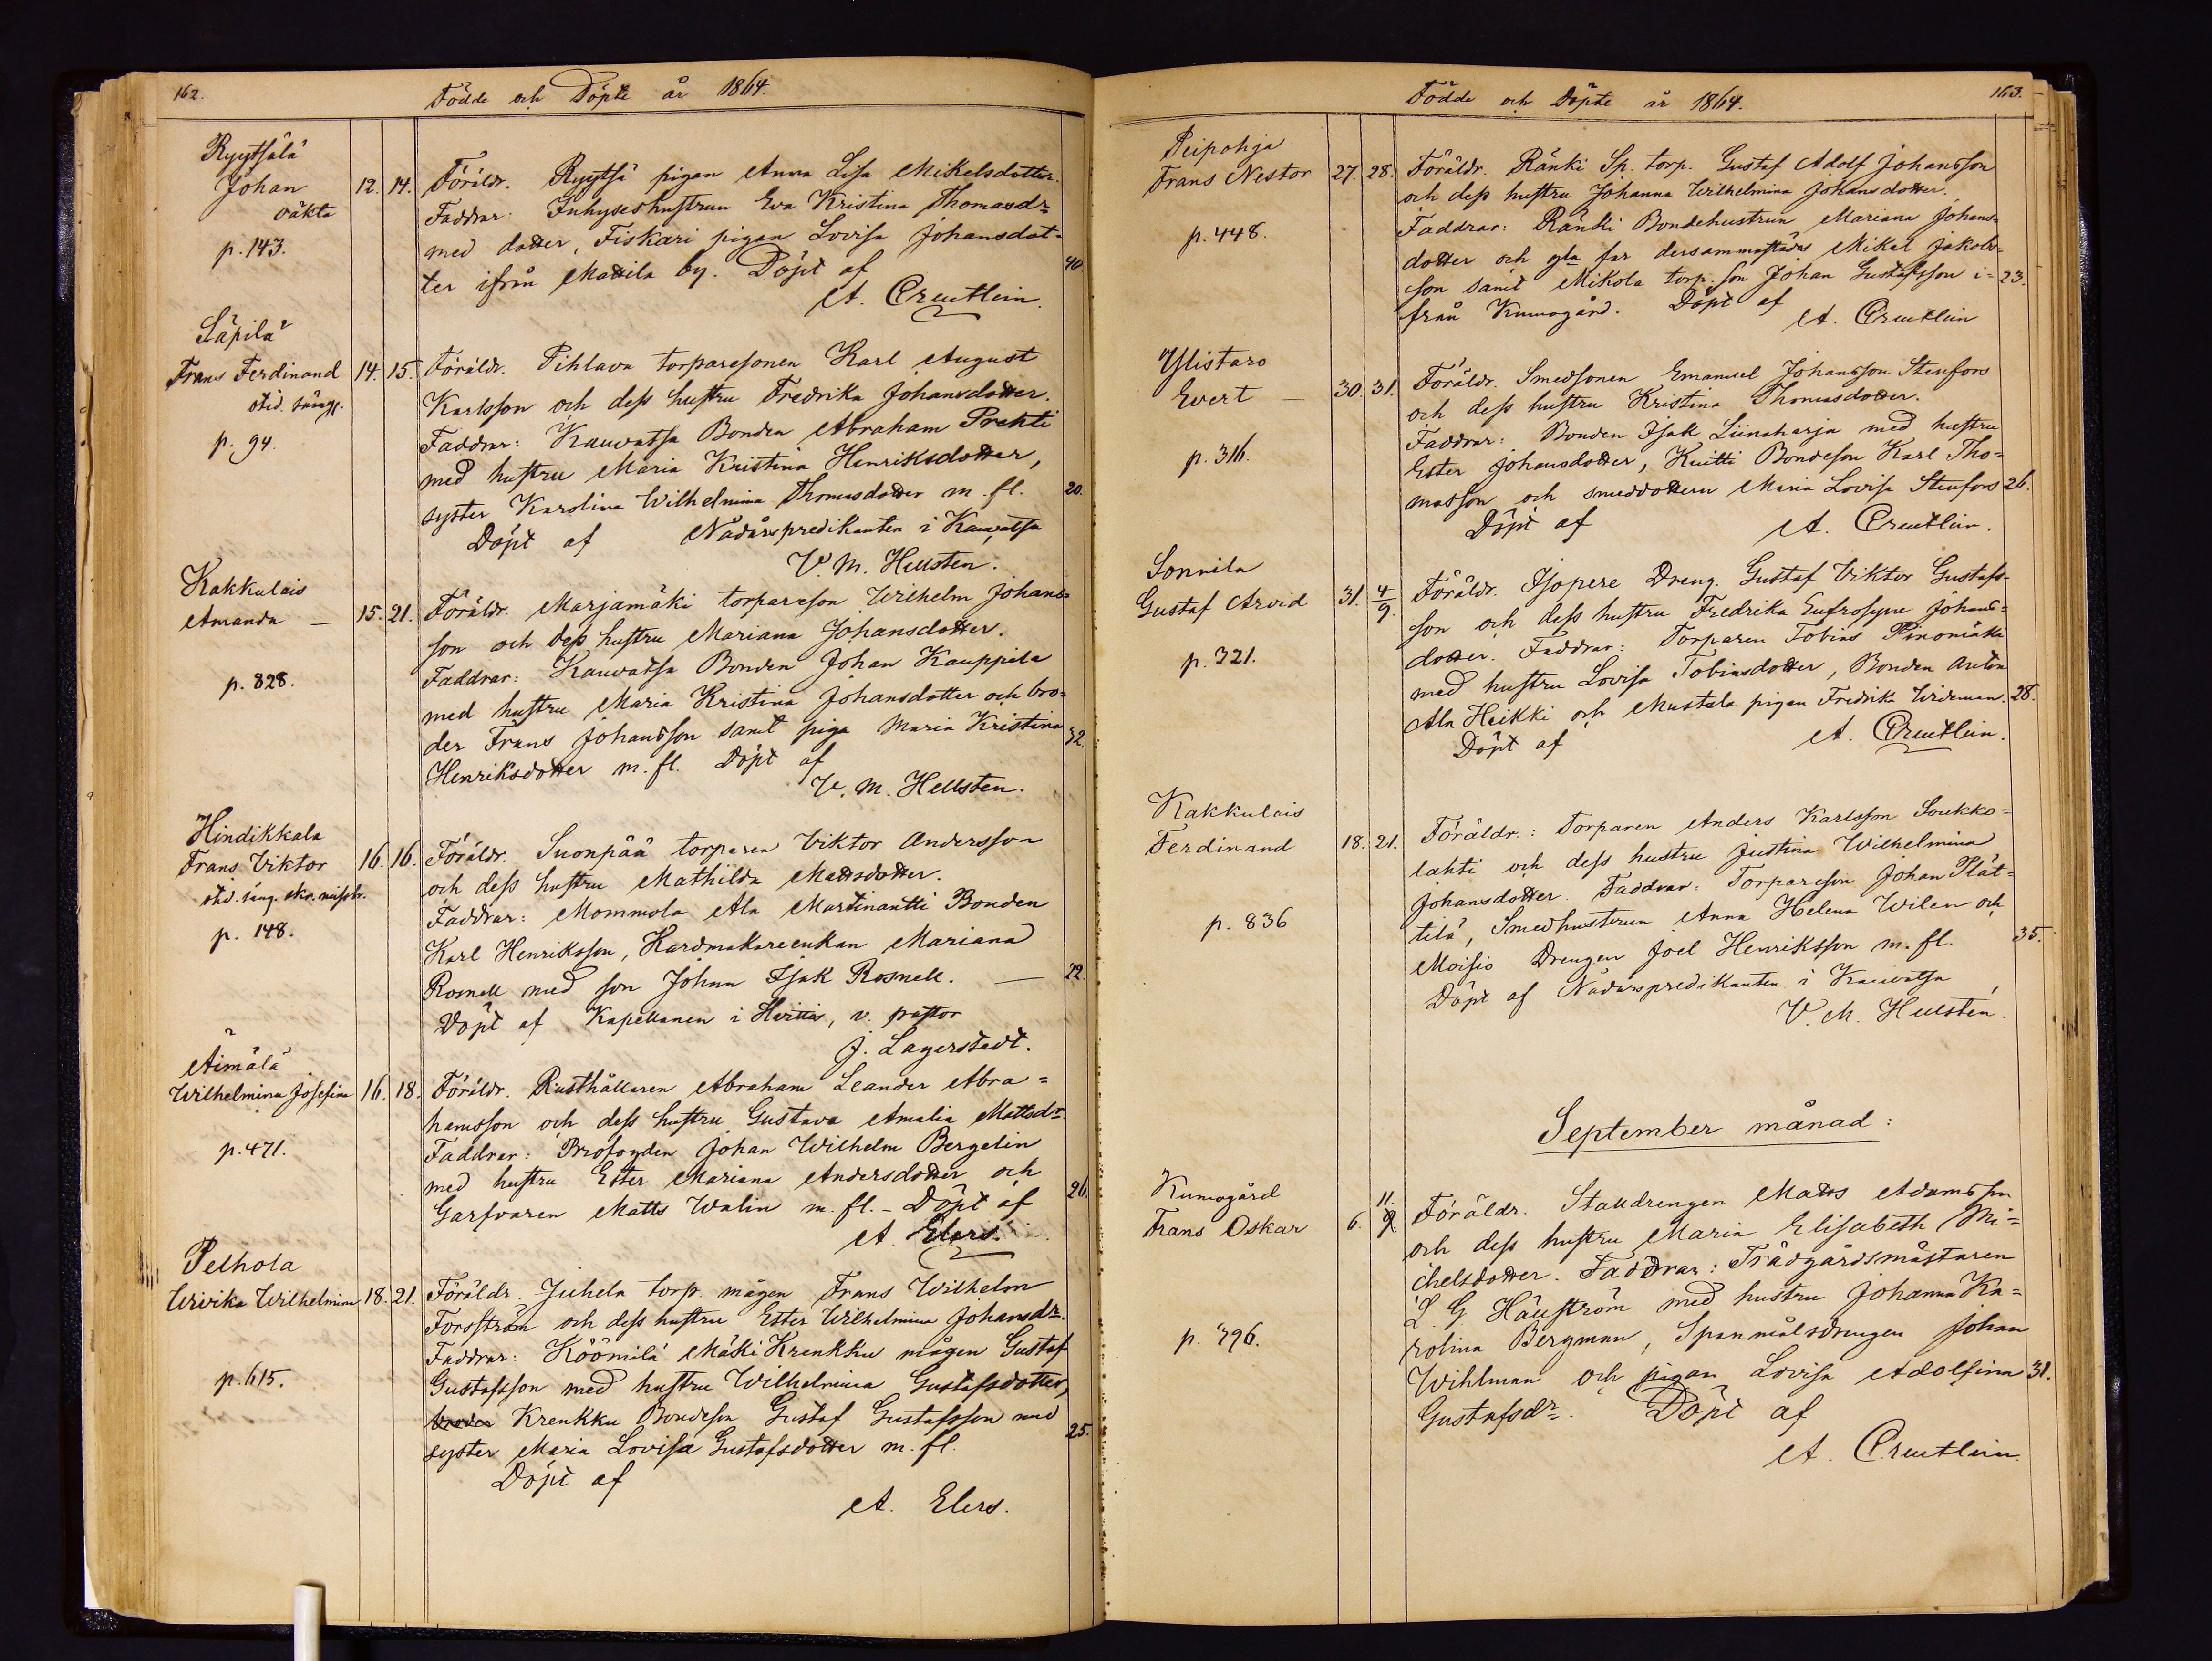 162.
Födde och Döpte år 1864.
Ryytsälä
Johan 12. 14. Föräldr. Ryytsä pigan Anna Lisa Mikelsdotter.
oäkta
Faddrar: Inhyseshustrun Eva Kristina Thomasdr
p. 143.
med dotter, Fiskari pigan Lovisa Johansdot-
ter ifrån Mattila by. Döpt af 40.
A. Creutlein.
Säpilä
Frans Ferdinand 14. 15. Föräldr. Pihlava torparesonen Karl August
Karlsson och dess hustru Fredrika Johansdotter.
p. 94.
Faddrar: Kauvatsa Bonden Abraham Prehti
med hustru Maria Kristina Henriksdotter,
syster Karolina Wilhelmina Thomasdotter m. fl. 20.
Döpt af Nådårspredikanten i Kauvatsa
V. M. Hellsten.
Kakkulais
Amanda — 15. 21. Föräldr. Marjamäki torpareson Wilhelm Johans-
son och dess hustru Mariana Johansdotter.
p. 828.
Faddrar: Kauvatsa Bonden Johan Kauppila
med hustru Maria Kristina Johansdotter och bro-
der Frans Johansson samt piga Maria Kristina 32.
Henriksdotter m. fl. Döpt af
V. M. Hellsten.
Hindikkala
Frans Viktor 16. 16. Föräldr. Suonpää torparen Viktor Andersson
och dess hustru Mathilda Mattsdotter.
p. 148.
Faddrar: Mommola Ala Martinantti Bonden
Karl Henriksson, Kardmakareenkan Mariana
Rosnell med son Johan Isak Rosnell. — 22.
Döpt af Kapellanen i Hvittis, v. pastor
J. Lagerstedt.
Äimälä
Wilhelmina Josefina 16. 18. Föräldr. Rusthållaren Abraham Leander Abra-
hamsson och dess hustru Gustava Amalia Mattsdr
p. 471.
Faddrar: Brofogden Johan Wilhelm Bergelin
med hustru Ester Mariana Andersdotter och
Garfvaren Matts Walin m. fl. - Döpt af 26.
A. Elers.
Pelhola
Wivika Wilhelmina 18. 21. Föräldr. Juhela torp. mågen Frans Wilhelm
Forsström och dess hustru Ester Wilhelmina Johansdr.
Faddrar: Köömilä Mäki Krenkku mågen Gustaf
p. 615.
Gustafsson med hustru Wilhelmina Gustafsdotter,
Krenkku Bondeson Gustaf Gustafsson med 25.
syster Maria Lovisa Gustafsdotter m. fl.
Döpt af
A. Elers.
Födde och Döpte år 1864.
163.
Peipohja
Frans Nestor 27. 28. Föräldr. Ränki Sp. torp. Gustaf Adolf Johansson
och dess hustru Johanna Wilhelmina Johansdotter.
p. 448.
Faddrar: Ränki Bondehustrun Mariana Johans-
dotter och gla far dersammastädes Mikel Jakobs-
son samt Mikola torp. son Johan Gustafsson i- 23.
från Kumogård. Döpt af
A. Creutlein
Ylistaro
Evert — 30. 31. Föräldr. Smedsonen Emanuel Johansson Stenfors
och dess hustru Kristina Thomasdotter.
p. 316.
Faddrar: Bonden Isak Liinaharja med hustru
Ester Johansdotter, Knitti Bondeson Karl Tho-
masson och smeddottern Maria Lovisa Stenfors 26.
Döpt af A. Creutlein.
Sonnila
Gustaf Arvid 31. 4/9. Föräldr. Isopere Dreng. Gustaf Viktor Gustafs-
son och dess hustru Fredrika Eufrosyne Johans-
p. 321.
dotter. Faddrar: Torparen Tobias Pinomäki
med hustru Lovisa Tobiasdotter, Bonden Anton
Ala Heikki och Mustala pigan Fredrika Wideman. 28.
Döpt af A. Creutlein.
Kakkulais
Ferdinand 18. 21. Föräldr.: Torparen Anders Karlsson Soukko-
lahti och dess hustru Justina Wilhelmina
p. 836
Johansdotter. Faddrar: Torpareson Johan Plät-
tilä, Smedhustrun Anna Helena Wilen och
Moisio Drengen Joel Henriksson m. fl. 35.
Döpt af Nådårspredikanten i Kauvatsa
V. M. Hellsten.
September månad:
Kumogård
Frans Oskar 6. 11/9. Föräldr. Stalldrengen Matts Adamsson
och dess hustru Maria Elisabeth Mi-
chelsdotter. Faddrar: Trädgårdsmästaren
p. 396.
L. G Häuström med hustru Johanna Ka-
rolina Bergman, Spanmålsdrengen Johan
Wihlman och pigan Lovisa Adolfina 31.
Gustafsdr. Döpt af
A. Creutlein.